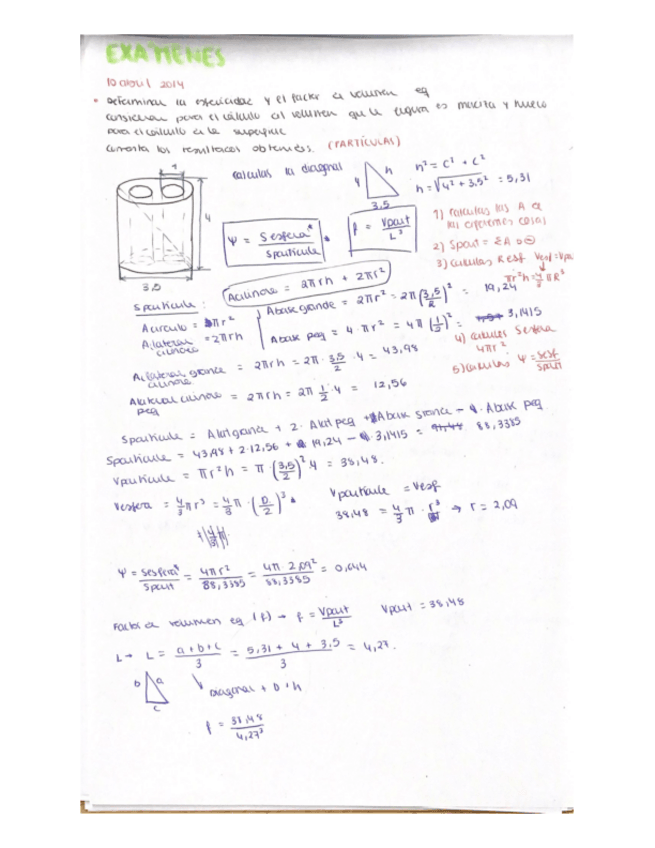 EXAMENES
10 abril 2014
• Determinar la esfericidad y el factor de volumen eq
consideran para el cálculo del volumen que la figura es maciza y hueco
para el cálculo de la superficie
comenta los resultados obtenidos. (PARTÍCULAS)
1
4
3,5
calculas la diagonal
4
h
3.5
h² = c² + c²
h = √4² + 3,5² = 5,31
Ψ = Sesfera* / Spartícula
f = Vpart / L³
1) calculas las A de
las diferentes cosas
2) Spart = ΣA
3) calculas R esf Vesf = Vpa
πr²h = 4/3 πR³
Acilindro = 2πrh + 2πr²
Spartícula:
Acírculo = πr²
A lateral cilindro = 2πrh
Abase grande = 2πr² = 2π (3,5/2)² = 19,24
Abase peq = 4·πr² = 4π (1/2)² = 3,1415
4) calculas Sesfera
4πr²
5) calculas Ψ = sesf/spart
A lateral grande cilindro = 2πrh = 2π · 3,5/2 · 4 = 43,98
A lateral cilindro peq = 2πrh = 2π 1/2 · 4 = 12,56
Spartícula = Alat grande + 2· Alat peq + Abase grande - Abase peq
Spartícula = 43,98 + 2·12,56 + 19,24 - 3,1415 = 88,3385
Vpartícula = πr²h = π · (3,5/2)² 4 = 38,48.
Vesfera = 4/3 πr³ = 4/3 π · (D/2)³ •
Vpartícula = Vesf
38,48 = 4/3 π · r³ → r = 2,09
Ψ = Sesfera* / Spart = 4πr² / 88,3385 = 4π · 2,09² / 88,3385 = 0,644
Factor de volumen eq (f) → f = Vpart / L³ Vpart = 38,48
L → L = a+b+c / 3 = 5,31 + 4 + 3,5 / 3 = 4,27.
b
a
c
Diagonal + D + h
f = 38,48 / 4,27³